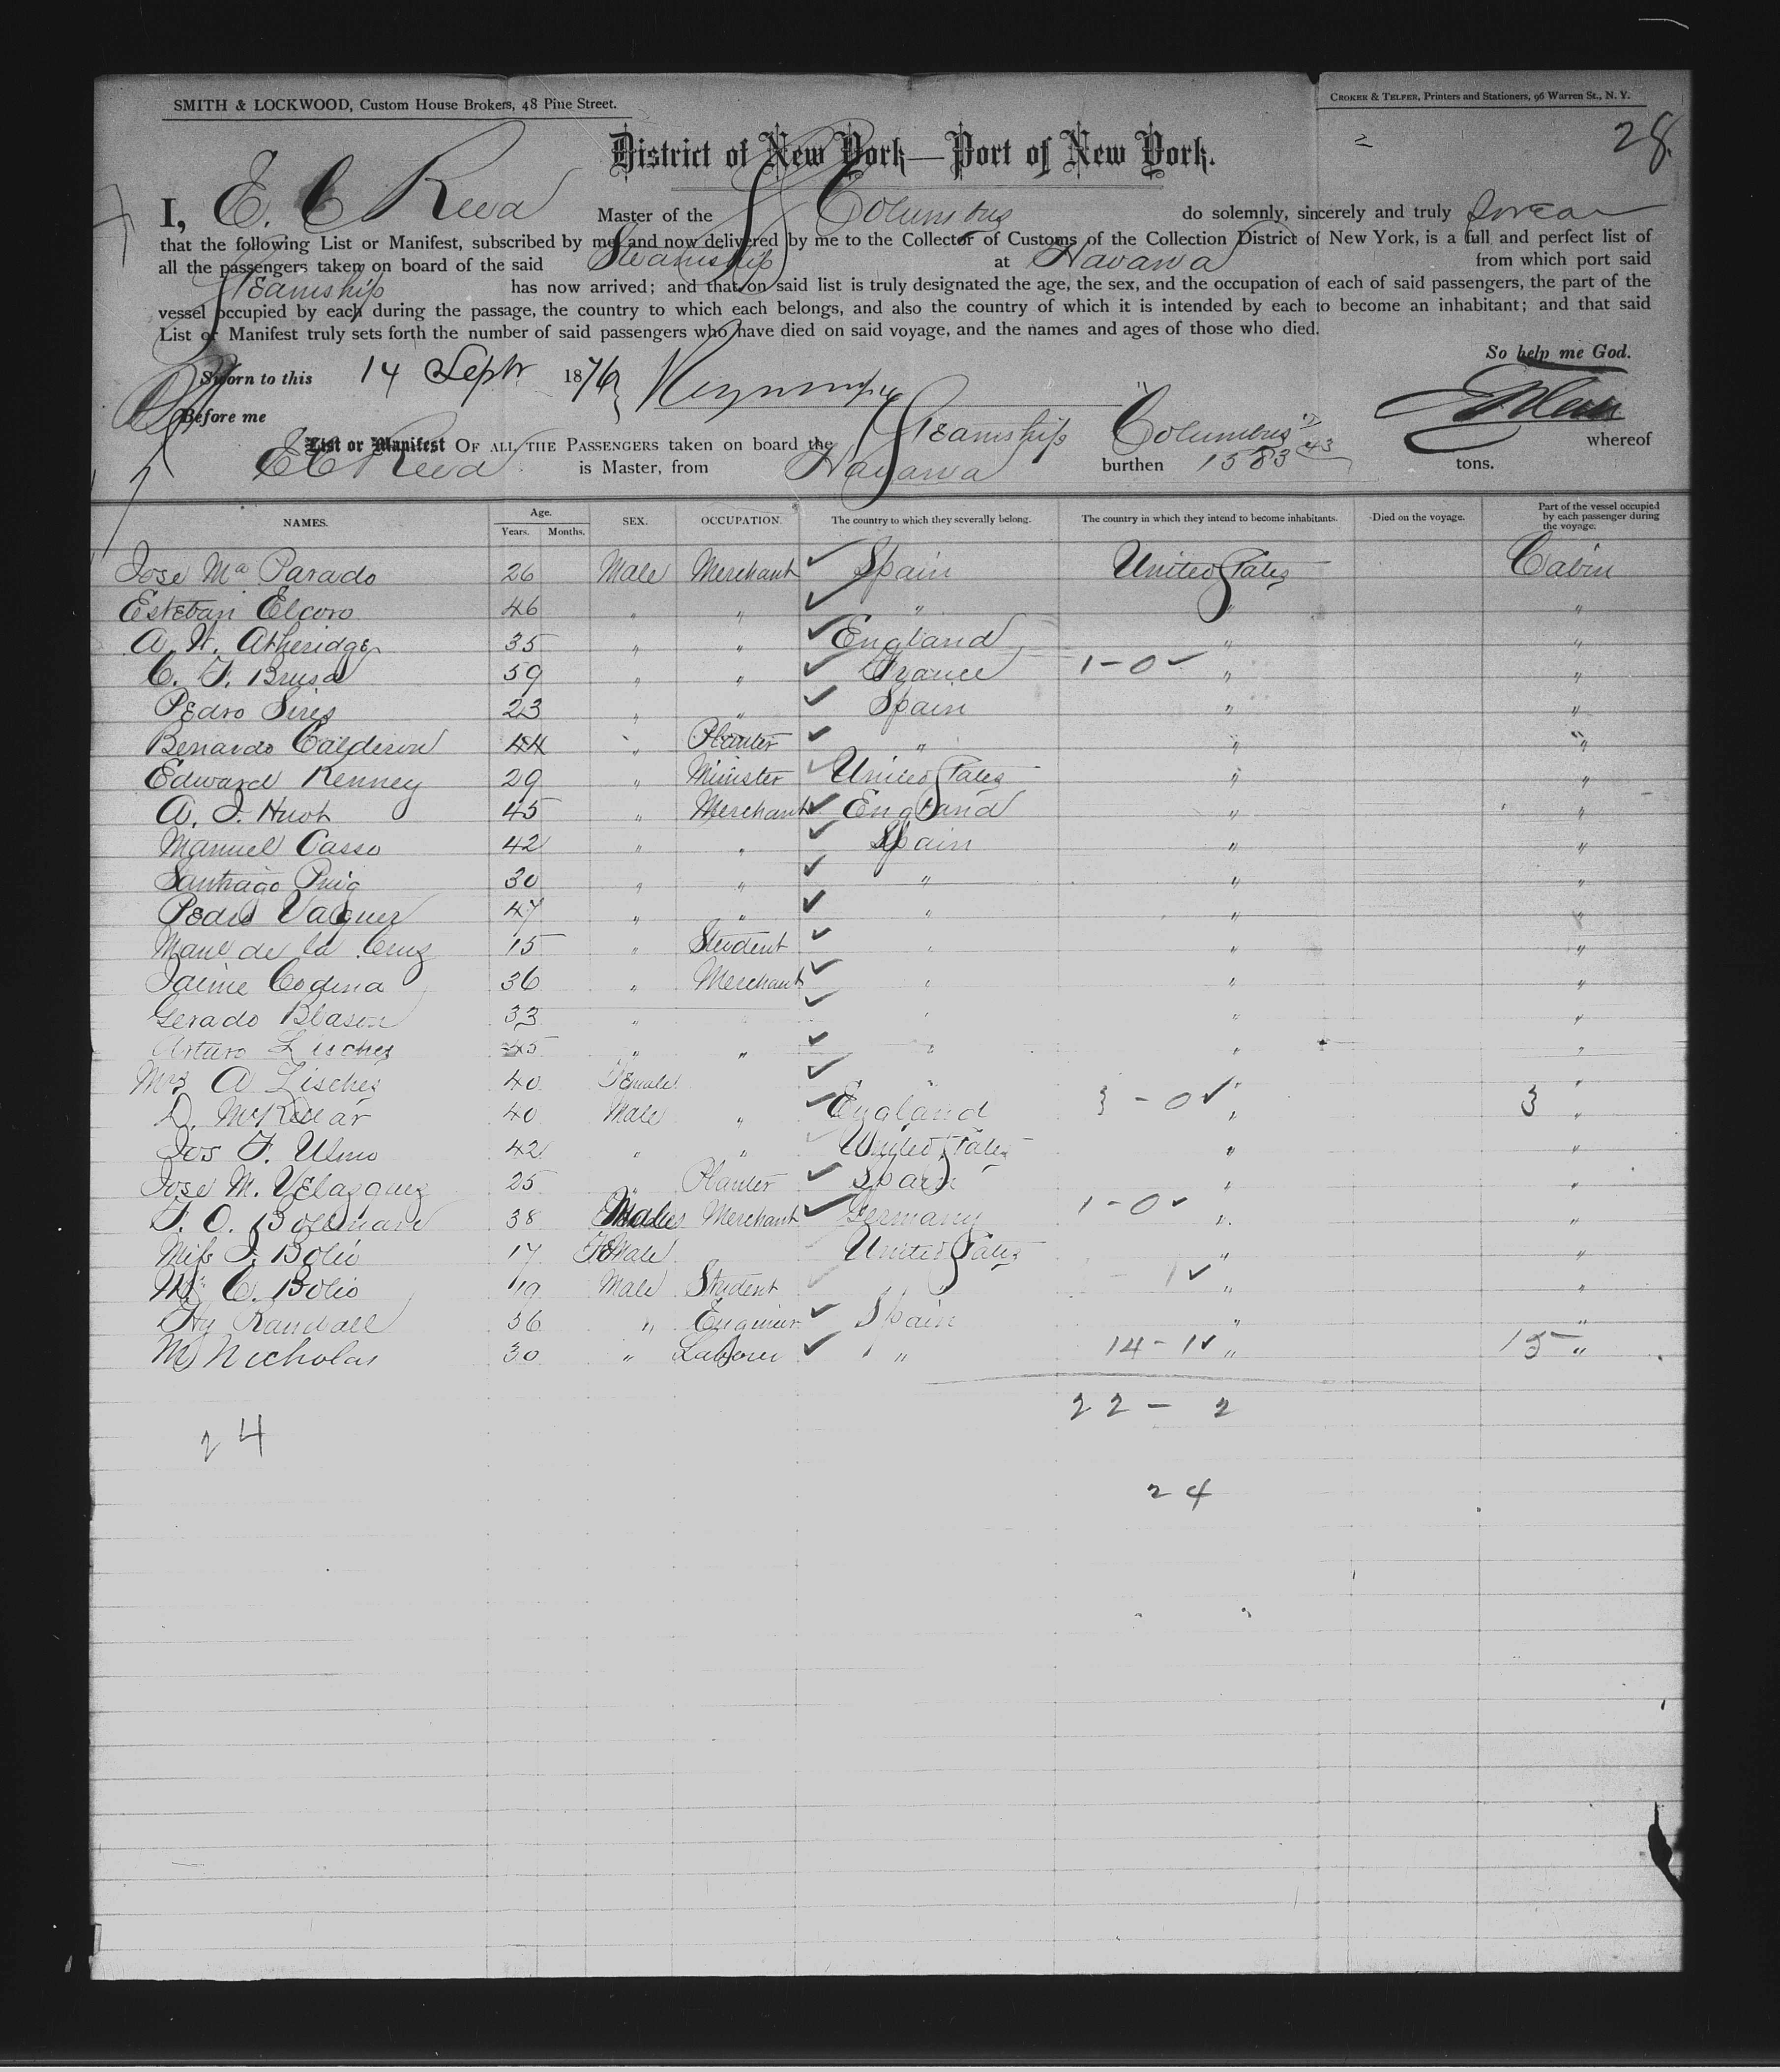 SMITH & LOCKWOOD, Custom House Brokers, 48 Pine Street.
CROKER & TELFER, Printers and Stationers, 96 Warren St., N. Y.
28
District of New York—Port of New York.
I, E. C Reed Master of the Columbus do solemnly, sincerely and truly swear
that the following List or Manifest, subscribed by me and now delivered by me to the Collector of Customs of the Collection District of New York, is a full and perfect list of
all the passengers taken on board of the said Steamship at Havana from which port said
Steamship has now arrived; and that on said list is truly designated the age, the sex, and the occupation of each of said passengers, the part of the
vessel occupied by each during the passage, the country to which each belongs, and also the country of which it is intended by each to become an inhabitant; and that said
List or Manifest truly sets forth the number of said passengers who have died on said voyage, and the names and ages of those who died.
So help me God.
Sworn to this 14 Septr 1876
Before me
List or Manifest OF ALL THE PASSENGERS taken on board the Steamship "Columbus" whereof
E C Reed is Master, from Havana burthen 1583 43 tons.
NAMES. Age. Years. Months. SEX. OCCUPATION. The country to which they severally belong. The country in which they intend to become inhabitants. Died on the voyage. Part of the vessel occupied by each passenger during the voyage.
Jose Ma Parado 26 Male Merchant ✓ Spain United States Cabin
Esteban Elcoro 46 " " ✓ " " "
A. W. Atheridge 35 " " ✓ England " "
C. F. Brusa 59 " " ✓ France 1-0 ✓ " "
Pedro Sires 23 " " ✓ Spain " "
Benardo Calderon 44 " Planter ✓ " " "
Edward Kenney 29 " Minister ✓ United States " "
A. J. Huot 45 " Merchant ✓ England " "
Manuel Casso 42 " " ✓ Spain " "
Santiago Puig 30 " " ✓ " " "
Pedro Vaquer 47 " " ✓ " " "
Manl de la Cruz 15 " Student ✓ " " "
Jaime Codina 36 " Merchant ✓ " " "
Gerado Blason 33 " ✓ " " "
Arturo Lisches 45 " " ✓ " " "
Mrs A Lisches 40 Female ✓ " " "
D. McKellar 40 Male " ✓ England 3-0 ✓ " 3 "
Jos F. Ulmo 42 " " ✓ United States " "
Jose M. Velazquez 25 " Planter ✓ Spain " "
F. O. 38 Male Merchant ✓ Germany 1-0 ✓ " "
Miss J. Bolio 17 Female United States " "
Mr C. Bolio 19 Male Student ✓ " - 1 ✓ " "
Hy Randall 36 " Engineer ✓ Spain " "
M Nicholas 30 " Laborer ✓ " 14-1 ✓ " 15 "
22 - 2
24
24